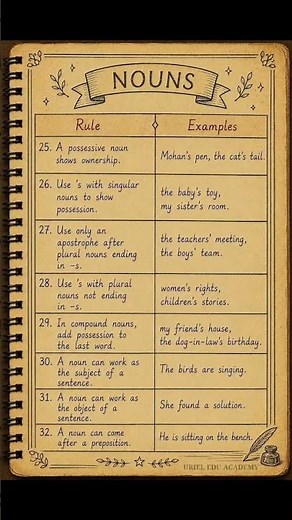 NOUNS
Rule
Examples
25. A possessive noun
shows ownership.
Mohan's pen, the cat's tail.
26. Use 's with singular
nouns to show
possession.
the baby's toy,
my sister's room.
27. Use only an
apostrophe after
plural nouns ending
in -s.
the teachers' meeting,
the boys' team.
28. Use 's with plural
nouns not ending
in -s.
women's rights,
children's stories.
29. In compound nouns,
add possession to
the last word.
my friend's house,
the dog-in-law's birthday.
30. A noun can work as
the subject of a
sentence.
The birds are singing.
31. A noun can work as
the object of a
sentence.
She found a solution.
32. A noun can come
after a preposition.
He is sitting on the bench.
URIEL EDU ACADEMY